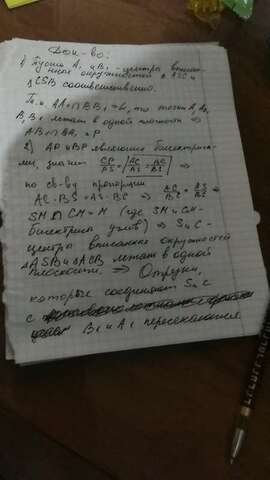 Док-во:
1) Пусть A₁ и B₁ - центры вписан-
ных окружностей в ASC и
CSB соответственно.
Т.к. AA₁∩BB₁=L, то точки A, A₁,
B, B₁ лежат в одной плоскости ⇒
AB₁∩BA₁ = P
2) AP и BP являются биссектриса-
ми, значит CP/PS = AC/AS = BC/BS
по св-ву пропорции
AC·BS = AS·BC ⇒ AC/BC = AS/BS ⇒
SM∩CM=M (где SM и CM-
биссектриса углов) ⇒ S и C-
центры вписанных окружностей
△ASB и △ACB лежат в одной
плоскости. ⇒ Отрезки,
которые соединяют S и C
с
B₁ и A₁ пересекаются